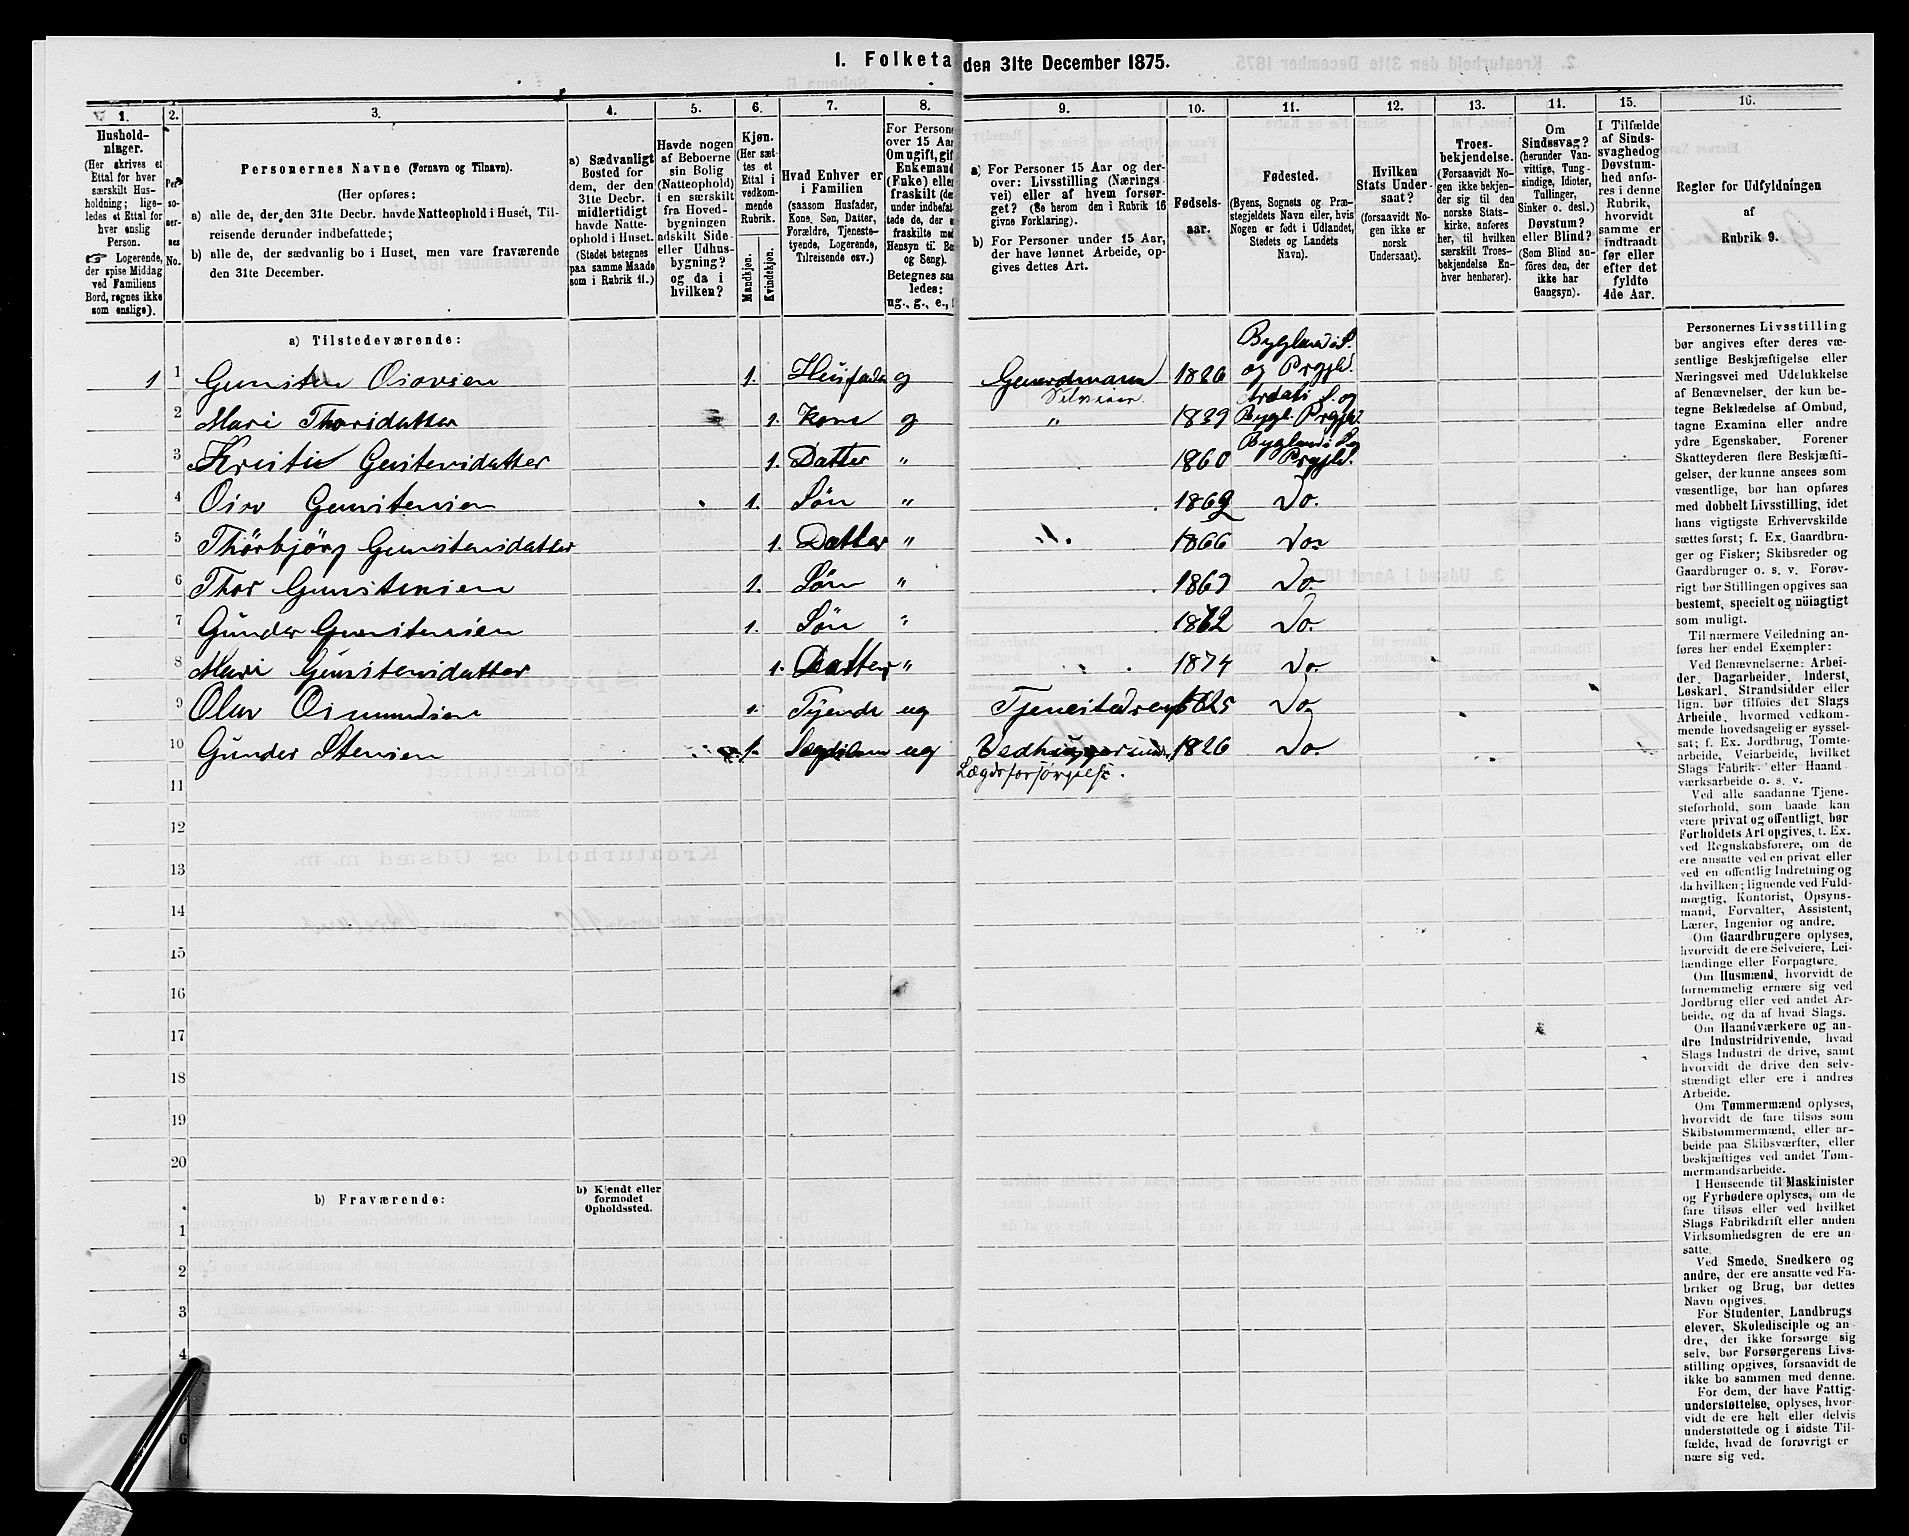 I. Folketa den 31te December 1875.
1. 2. 3. 4. 5. 6. 7. 8. 9. 10. 11. 12. 13. 14. 15. 16.
Hushold-
ninger.
(Her skrives et
Ettal for hver
særskilt Hus-
holdning; lige-
ledes et Ettal for
hver enslig
Person.
Logerende,
der spise Middag
ved Familiens
Bord, regnes ikke
som enslige).
Per-
so-
ner-
nes
No.
Personernes Navne (Fornavn og Tilnavn).
(Her opføres:
a) alle de, der den 31te Decbr. havde Natteophold i Huset, Til-
reisende derunder indbefattede;
b) alle de, der sædvanlig bo i Huset, men vare fraværende
den 31te December.
a) Sædvanligt
Bosted for
dem, der den
31te Decbr.
midlertidigt
havde Natte-
ophold i Huset.
(Stedet betegnes
paa samme Maade
som i Rubrik 11.)
Havde nogen
af Beboerne
sin Bolig
(Natteophold)
i en særskilt
fra Hoved-
bygningen
adskilt Side-
eller Udhus-
bygning?
og da i
hvilken?
Kjøn.
(Her sæt-
tes et
Ettal i
vedkom-
mende
Rubrik.
Mandkjøn.
Kvindekjøn.
Hvad Enhver er
i Familien
(saasom Husfader,
Kone, Søn, Datter,
Forældre, Tjeneste-
tyende, Logerende,
Tilreisende osv.)
For Persone
over 15 Aar
Om ugift, gif
Enkemand
(Enke) elle
fraskilt (de
under indbefat-
tede de, der e
fraskilte med
Hensyn til Bo
og Seng).
Betegnes saa
ledes:
ug., g., e., f
a) For Personer 15 Aar og der-
over: Livsstilling (Nærings
vei) eller af hvem forsør-
get? (Se herom den i Rubrik 16
givne Forklaring).
b) For Personer under 15 Aar,
der have lønnet Arbeide, op-
gives dettes Art.
Fødsels-
aar.
Fødested.
(Byens, Sognets og Præ-
stegjeldets Navn eller, hvis
Nogen er født i Udlandet,
Stedets og Landets
Navn).
Hvilken
Stats Under-
saat?
(forsaavidt No-
gen ikke er
norsk
Undersaat).
Troes-
bekjendelse.
(Forsaavidt No-
gen ikke bekjen-
der sig til den
norske Stats-
kirke, anføres
her, til hvilken
særskilt Troes-
bekjendelse En-
hver henhører).
Om
Sindssvag?
(herunder Van-
vittige, Tung-
sindige, Idioter,
Tullinger,
Sinker o. desl.)
Døvstum?
eller Blind?
(Som Blind an-
føres den, der
ikke har
Gangsyn).
I Tilfælde
af Sinds-
svaghed og
Døvstum-
hed anfø-
res i denne
Rubrik,
hvorvidt
samme er
indtraadt
før eller
efter det
fyldte
4de Aar.
Regler for Udfyldningen
af
Rubrik 9.
a) Tilstedeværende:
1 1 Gunsten Osavsen 1. Husfader g Gaardmand Selveier 1826 Bygland i S. og Prgjld.
2 Mari Thorsdatter 1. Kone g " 1839 Ardals S. og Bygl. Prgjld.
3 Kristie Gunstensdatter 1. Datter " 1860 Bygland S. og Prgjld.
4 Osv Gunstensen 1. Søn " 1862 Do.
5 Thorbjørg Gunstensdatter 1. Datter " 1866 Do.
6 Thor Gunstensen 1. Søn " 1869 Do.
7 Gunder Gunstensen 1. Søn " 1872 Do.
8 Mari Gunstensdatter 1. Datter " 1874 Do.
9 Olav Osmundsen 1. Tyende ug Tjenestedreng 1825 Do.
10 Gunder Stensen 1. Lægdslem ug Vedhugger 1826 Do.
Lægdsforsørgelse.
11
12
13
14
15
16
17
18
19
20
b) Fraværende:
b) Kjendt eller
formodet
Opholdssted.
1
2
3
4
6
Personernes Livsstilling
bør angives efter deres væ-
sentlige Beskjæftigelse eller
Næringsvei med Udelukkelse
af Benævnelser, der kun be-
tegne Beklædelse af Ombud,
tagne Examina eller andre
ydre Egenskaber. Forener
Skatteyderen flere Beskjæfti-
gelser, der kunne ansees som
væsentlige, bør han opføres
med dobbelt Livsstilling, idet
hans vigtigste Erhvervskilde
sættes først; f. Ex. Gaardbru-
ger og Fisker; Skibsreder og
Gaardbruger o. s. v. Forøv-
rigt bør Stillingen opgives saa
bestemt, specielt og nøiagtigt
som muligt.
Til nærmere Veiledning an-
føres her endel Exempler:
Ved Benævnelserne: Arbei-
der, Dagarbeider, Inderst,
Løskarl, Strandsidder eller
lign. bør tilføies det Slags
Arbeide, hvormed vedkom-
mende hovedsagelig er syssel-
sat; f. Ex. Jordbrug, Tomte-
arbeide, Veiarbeide, hvilket
Slags Fabrik- eller Haand
værksarbeide o. s. v.
Ved alle saadanne Tjene-
steforhold, som baade kan
være privat og offentligt, bør
Forholdets Art opgives, t. Ex.
ved Regnskabsførere, om de
ere ansatte ved en privat eller
ved en offentlig Indretning og
da hvilken; lignende ved Fuld-
mægtig, Kontorist, Opsyns-
mand, Forvalter, Assistent,
Lærer, Ingeniør og andre.
Om Gaardbrugere oplyses,
hvorvidt de ere Selveiere, Lei-
lændinge eller Forpagtere.
Om Husmænd, hvorvidt de
fornemmelig ernære sig ved
Jordbrug eller ved andet Ar-
beide, og da af hvad Slags.
Om Haandværkere og an-
dre Industridrivende, hvad
Slags Industri de drive, samt
hvorvidt de drive den selv-
stændigt eller ere i andres
Arbeide.
Om Tømmermænd oplyses,
hvorvidt de fare tilsøs som
Skibstømmermænd, eller ar-
beide paa Skibsværfter, eller
beskjæftiges ved andet Tøm-
mermandsarbeide.
I Henseende til Maskinister
og Fyrbødere oplyses, om de
fare tilsøs eller ved hvilket
Slags Fabrikdrift eller anden
Virksomhedsgren de ere an-
satte.
Ved Smede, Snedkere og
andre, der ere ansatte ved Fa-
briker og Brug, bør dettes
Navn opgives.
For Studenter, Landbrugs
elever, Skoledisciple og an-
dre, der ikke forsørge sig
selv, bør Forsørgerens Livs-
stilling opgives, forsaavidt de
ikke bo sammen med denne.
For dem, der have Fattig-
understøttelse, oplyses, hvor-
vidt de ere helt eller delvis
understøttede og i sidste Til-
fælde, hvad de forøvrigt er
nære sig ved.